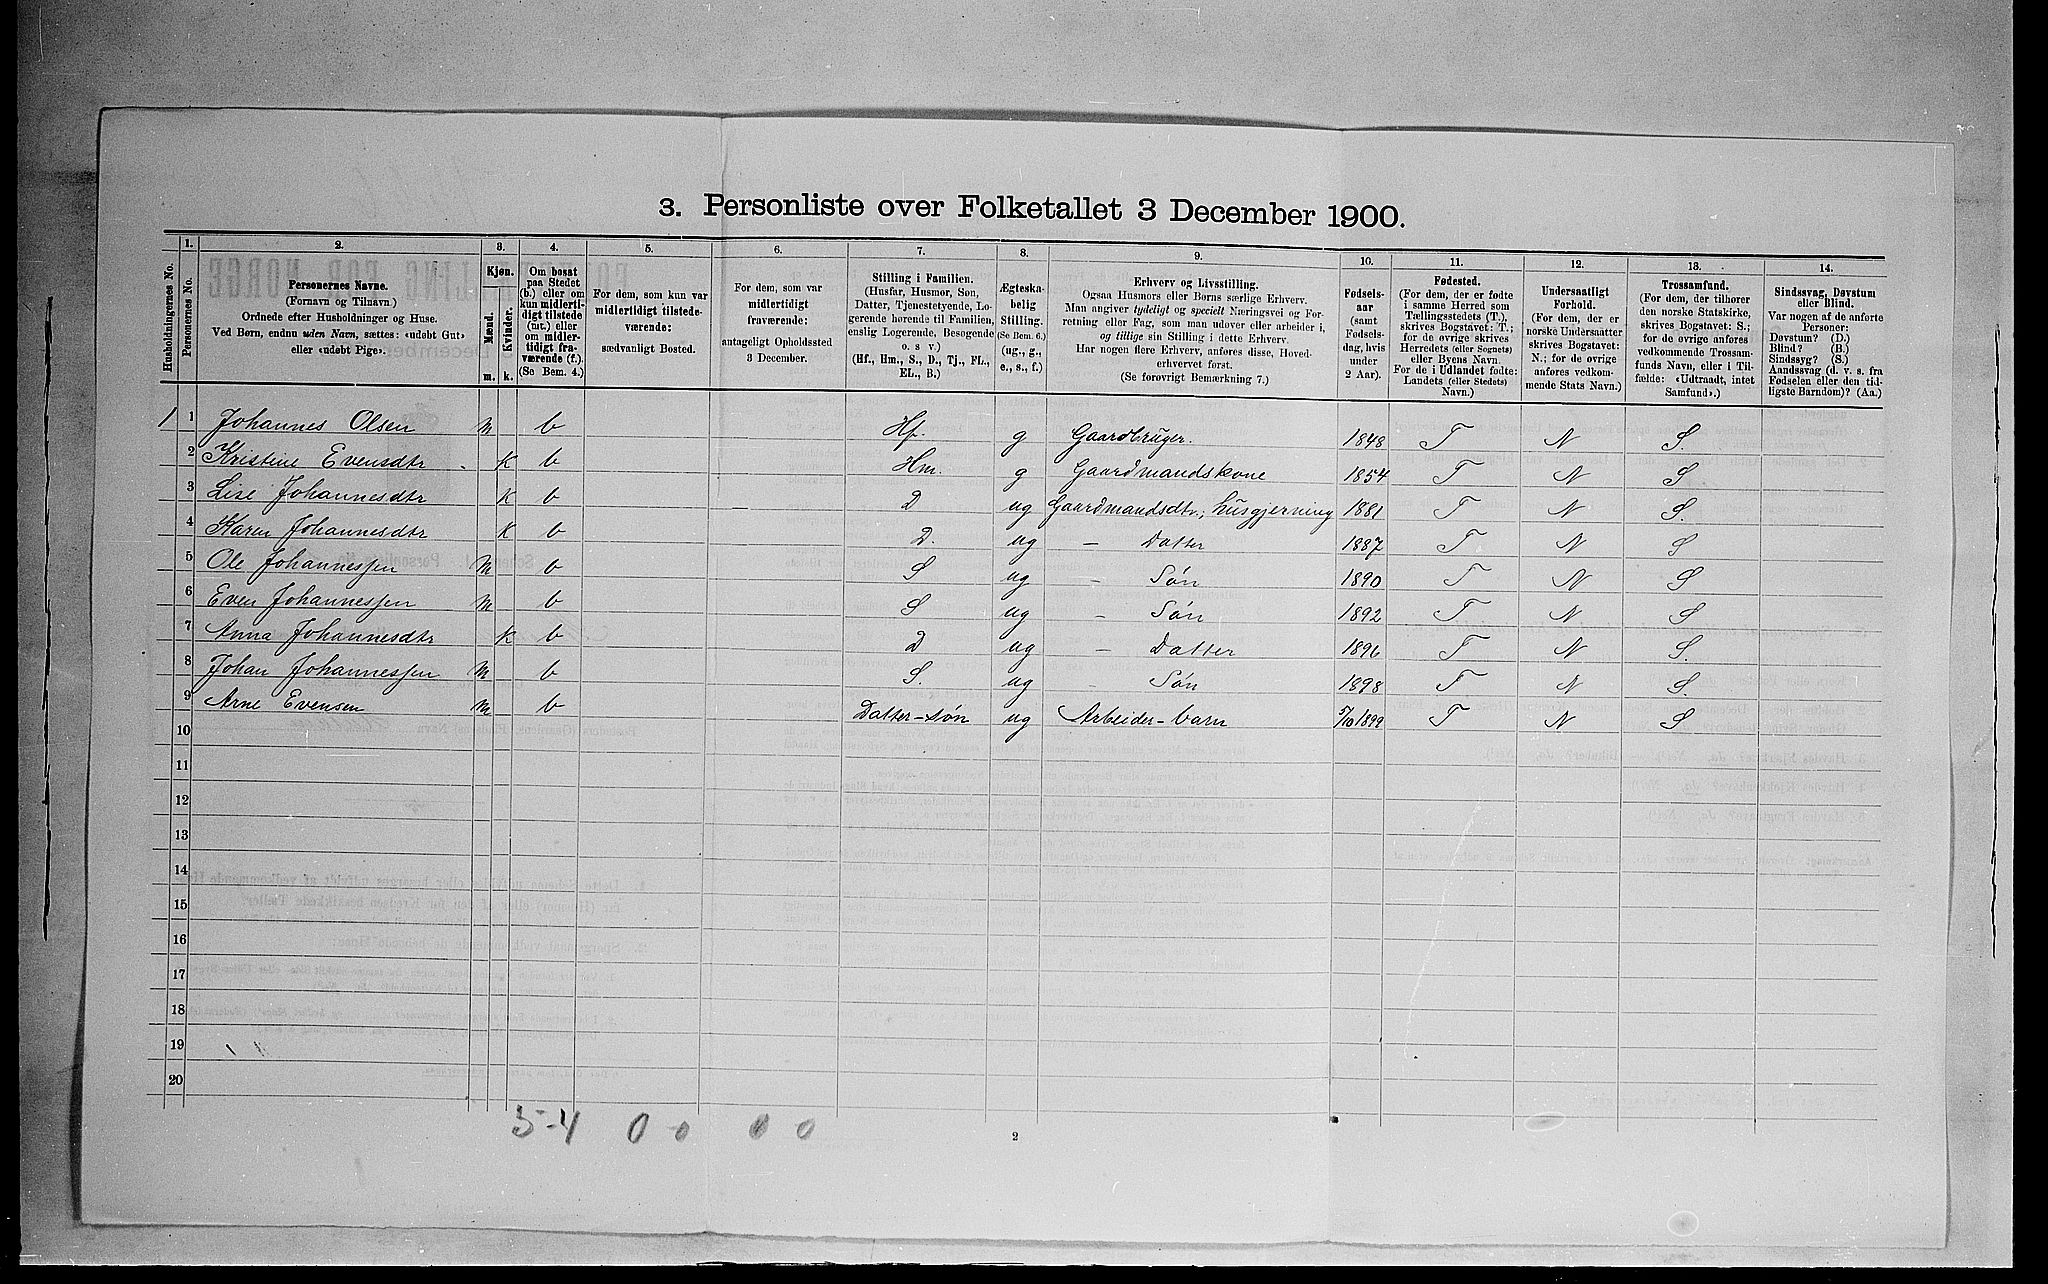 3. Personliste over Folketallet 3 December 1900.
1. 2. 3. 4. 5. 6. 7. 8. 9. 10. 11. 12. 13. 14.
Husholdningernes No.
Personernes No.
Personernes Navne.
(Fornavn og Tilnavn.)
Ordnede efter Husholdninger og Huse.
Ved Børn, endnu uden Navn, sættes: «udøbt Gut»
eller «udøbt Pige».
Kjøn.
Mænd.
Kvinder.
m. k.
Om bosat
paa Stedet
(b.) eller om
kun midlerti-
digt tilstede
(mt.) eller
om midler-
tidigt fra-
værende (f.).
(Se Bem. 4.)
For dem, som kun var
midlertidigt tilstede-
værende:
sædvanligt Bosted.
For dem, som var
midlertidigt
fraværende:
antageligt Opholdssted
3 December.
Stilling i Familien.
(Husfar, Husmor, Søn,
Datter, Tjenestetyende, Lo-
gerende hørende til Familien,
enslig Logerende, Besøgende
o. s v.)
(Hf., Hm., S., D., Tj., FL.,
EL., B.)
Ægteska-
belig
Stilling.
(Se Bem. 6.)
(ug., g.,
e., s., f.)
Erhverv og Livsstilling.
Ogsaa Husmors eller Børns særlige Erhverv.
Man angiver tydeligt og specielt Næringsvei og For-
retning eller Fag, som man udøver eller arbeider i,
og tillige sin Stilling i dette Erhverv.
Har nogen flere Erhverv, anføres disse, Hoved-
erhvervet først.
(Se forøvrigt Bemærkning 7.)
Fødsels-
aar
(samt
Fødsels-
dag, hvis
under
2 Aar).
Fødested.
(For dem, der er fødte
i samme Herred som
Tællingsstedets (T.),
skrives Bogstavet: T.;
for de øvrige skrives
Herredets (eller Sognets)
eller Byens Navn.
For de i Udlandet fødte:
Landets (eller Stedets)
Navn.)
Undersaatligt
Forhold.
(For dem, der er
norske Undersaatter
skrives Bogstavet:
N.; for de øvrige
anføres vedkom-
mende Stats Navn.)
Trossamfund.
(For dem, der tilhører
den norske Statskirke,
skrives Bogstavet: S.;
for de øvrige anføres
vedkommende Trossam-
funds Navn, eller i Til-
fælde: «Udtraadt, intet
Samfund».)
Sindssvag, Døvstum
eller Blind.
Var nogen af de anførte
Personer:
Døvstum? (D.)
Blind? (B.)
Sindssyg? (S.)
Aandssvag (d. v. s. fra
Fødselen eller den tid-
ligste Barndom)? (Aa.)
1 1 Johannes Olsen m b Hf. g Gaardbruger. 1848 T N S.
2 Kristine Evensdtr k b Hm. g Gaardmandskone 1854 T N S
3 Lise Johannesdtr k b D ug Gaardmandsdtr.; husgjerning 1881 T N S.
4 Karen Johannesdtr k b D. ug — Datter 1887 T N S
5 Ole Johannessen m b S ug — Søn 1890 T N S
6 Even Johannessen m b S ug — Søn 1892 T N S
7 Anna Johannesdtr k b D ug — Datter 1896 T N S.
8 Johan Johannessen m b S. ug — Søn 1898 T N S.
9 Arne Evensen m b Datter-søn ug Arbeider-barn 5/10 1899 T N S
10
11
12
13
14
15
16
17
18
19
20
5-4 0-0 0 0
2